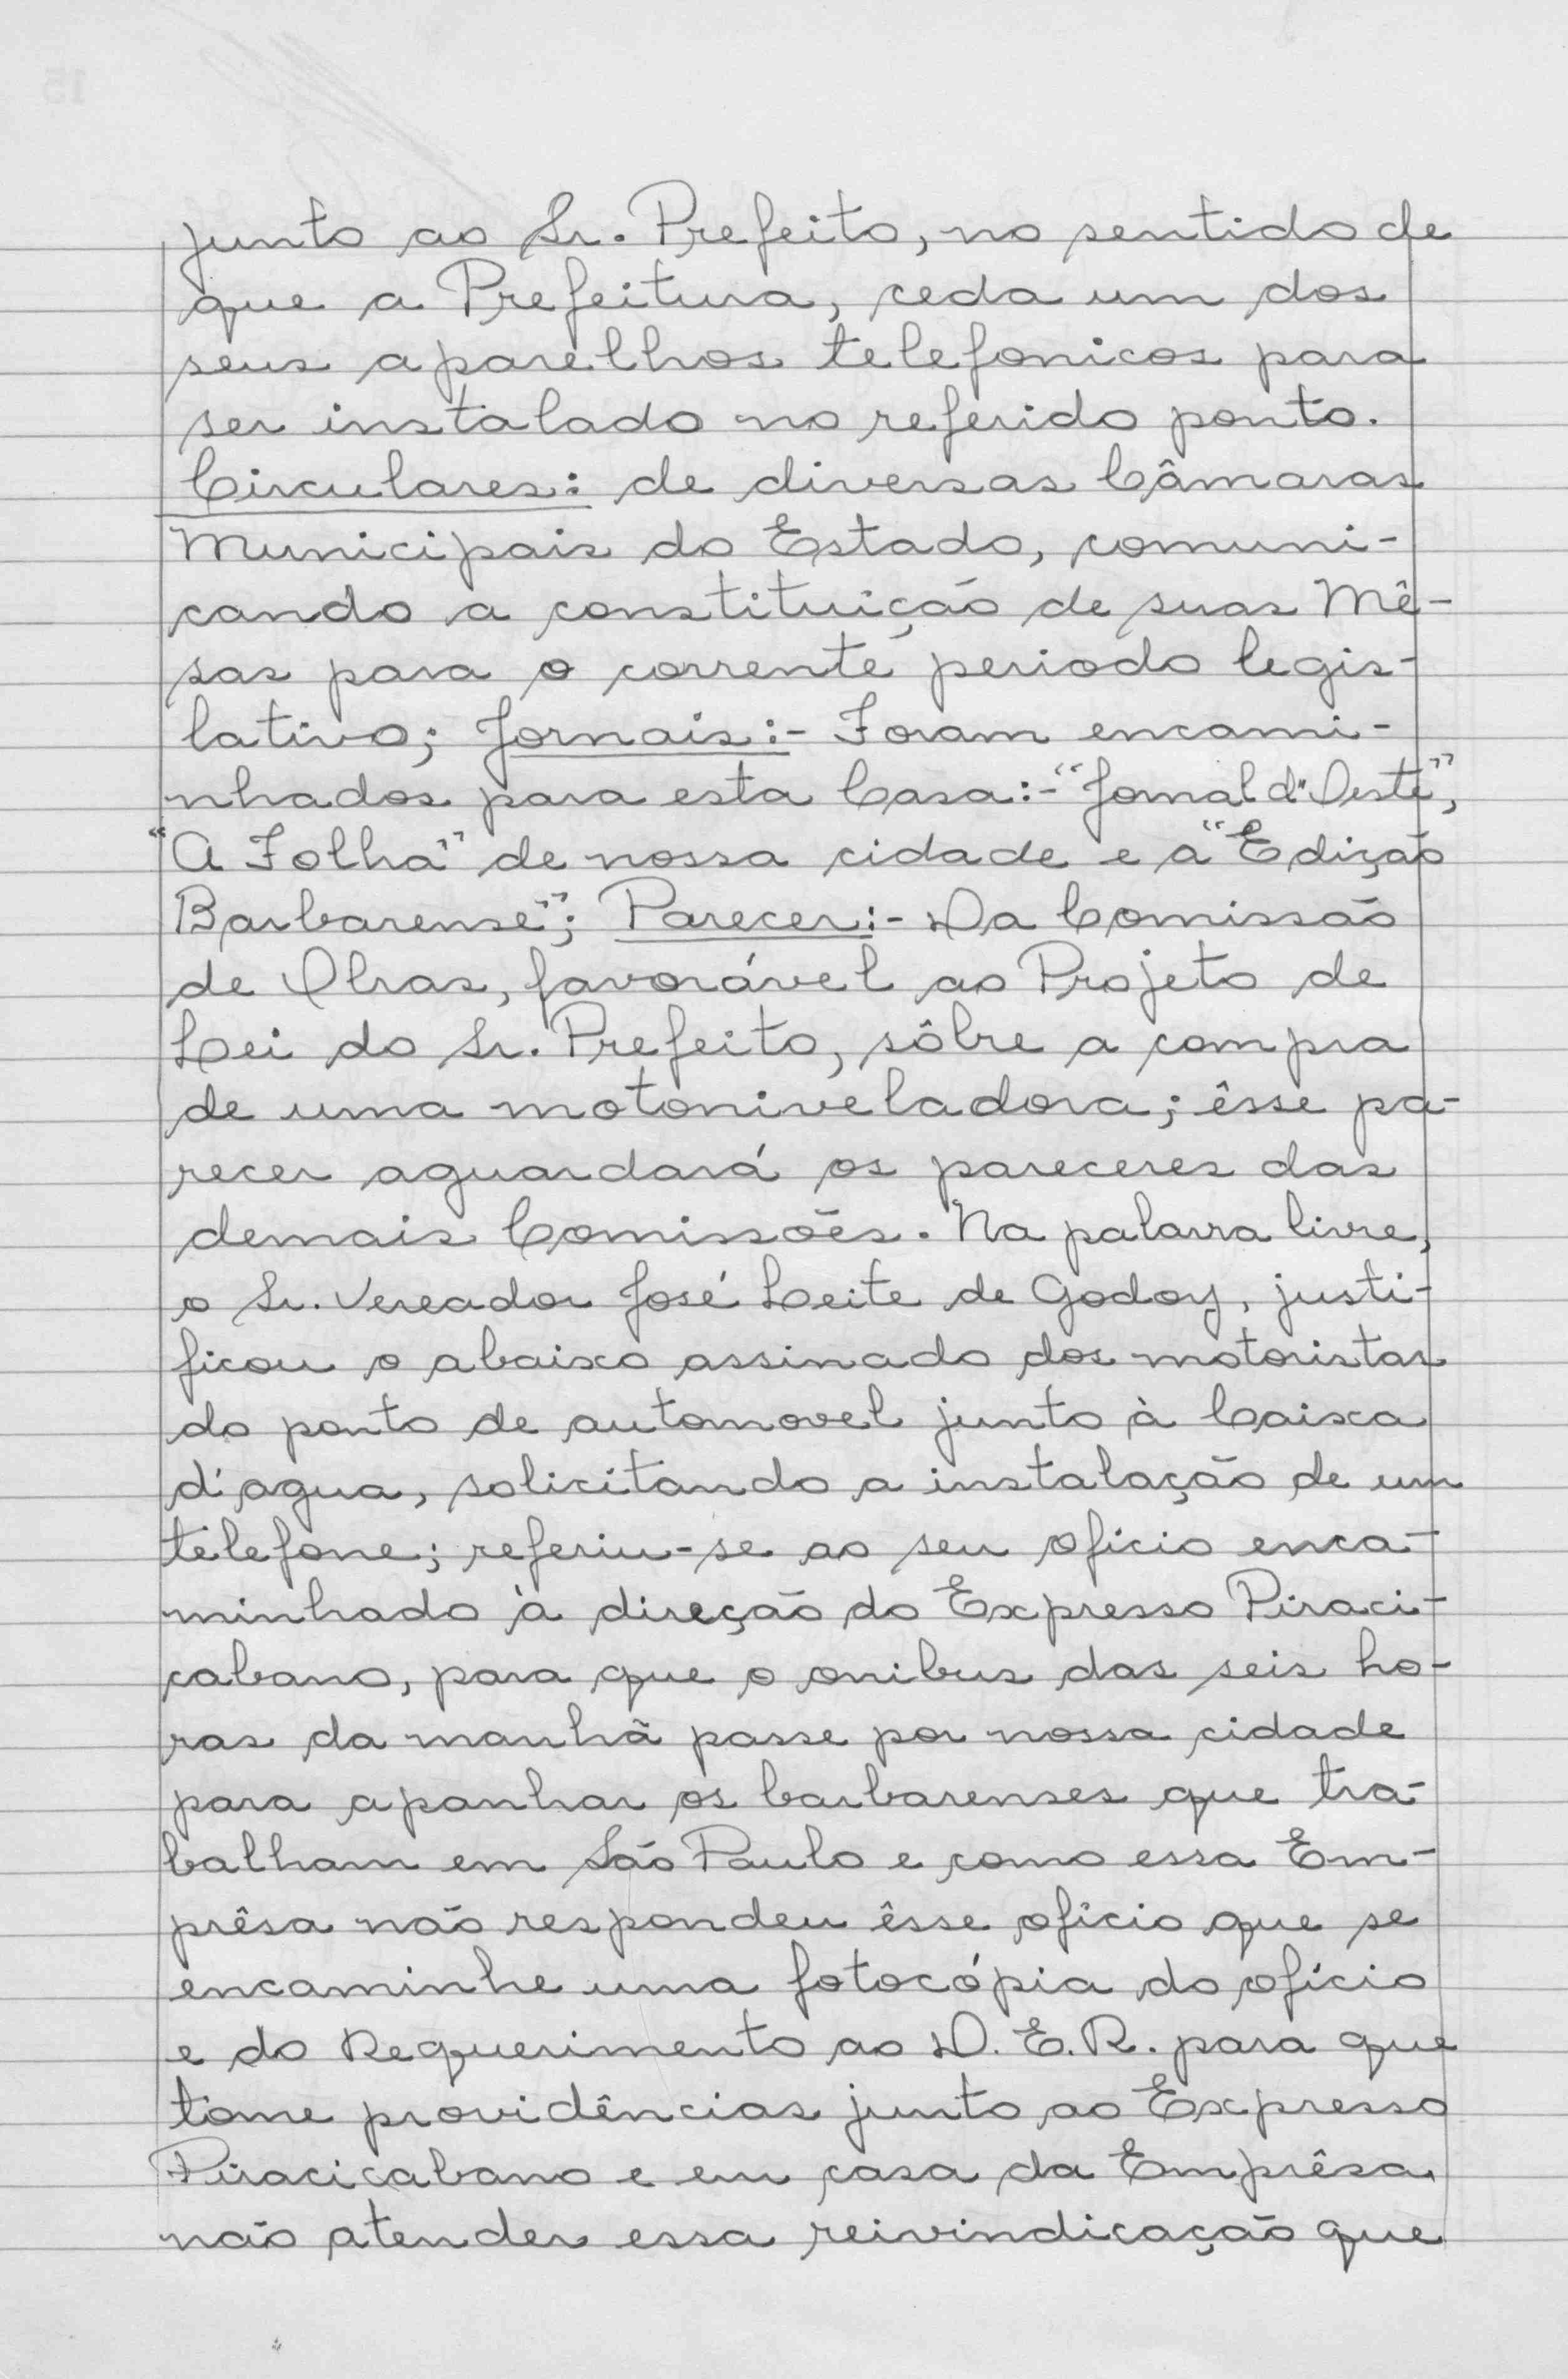 junto ao Sr. Prefeito, no sentido de
que a Prefeitura, ceda um dos
seus aparelhos telefonicos para
ser instalado no referido ponto.
Circulares: de diversas Câmaras
Municipais do Estado, comuni-
cando a constituição de suas Mê-
sas para o corrente periodo legis-
lativo; Jornais:- Foram encami-
nhados para esta Casa:- "Jornal d'Oeste",
"A Folha" de nossa cidade e a "Edição
Barbarense"; Parecer:- Da Comissão
de Obras, favorável ao Projeto de
Lei do Sr. Prefeito, sôbre a compra
de uma motoniveladora; êsse pa-
recer aguardará os pareceres das
demais Comissões. Na palavra livre,
o Sr. Vereador José Leite de Godoy, justi-
ficou o abaixo assinado dos motoristas
do ponto de automovel junto à Caixa
d'agua, solicitando a instalação de um
telefone; referiu-se ao seu oficio enca-
minhado à direção do Expresso Piraci-
cabano, para que o onibus das seis ho-
ras da manhã passe por nossa cidade
para apanhar os barbarenses que tra-
balham em São Paulo e como essa Em-
prêsa não respondeu êsse oficio que se
encaminhe uma fotocópia do ofício
e do Requerimento ao D. E. R. para que
tome providências junto ao Expresso
Piracicabano e em casa da Emprêsa
não atender essa reivindicação que